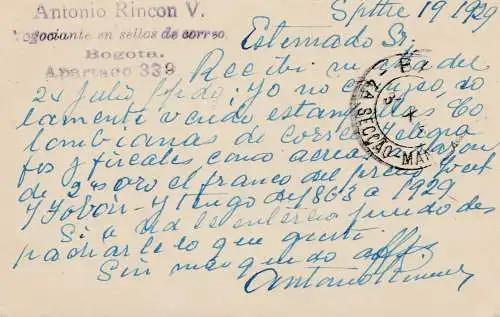 Antonio Rincon V.
Negociante en sellos de correo.
Bogota.
Apartado 339
Spttre 19 1929
Estimado Sr.
Recibi su atta del
24 Julio ppdo; Yo no canjeo, so
lamente vendo estampillas Co
lombianas de correos, telegra
fos y fiscales como aereas
de 2 oro el franco del precio Yvert
y Tengo de 1863 a 1929
Si a Ud le interesa puedo des
pacharle lo que guste.
Sin mas quedo affs
Antonio Rincon
4A SECÇÃO